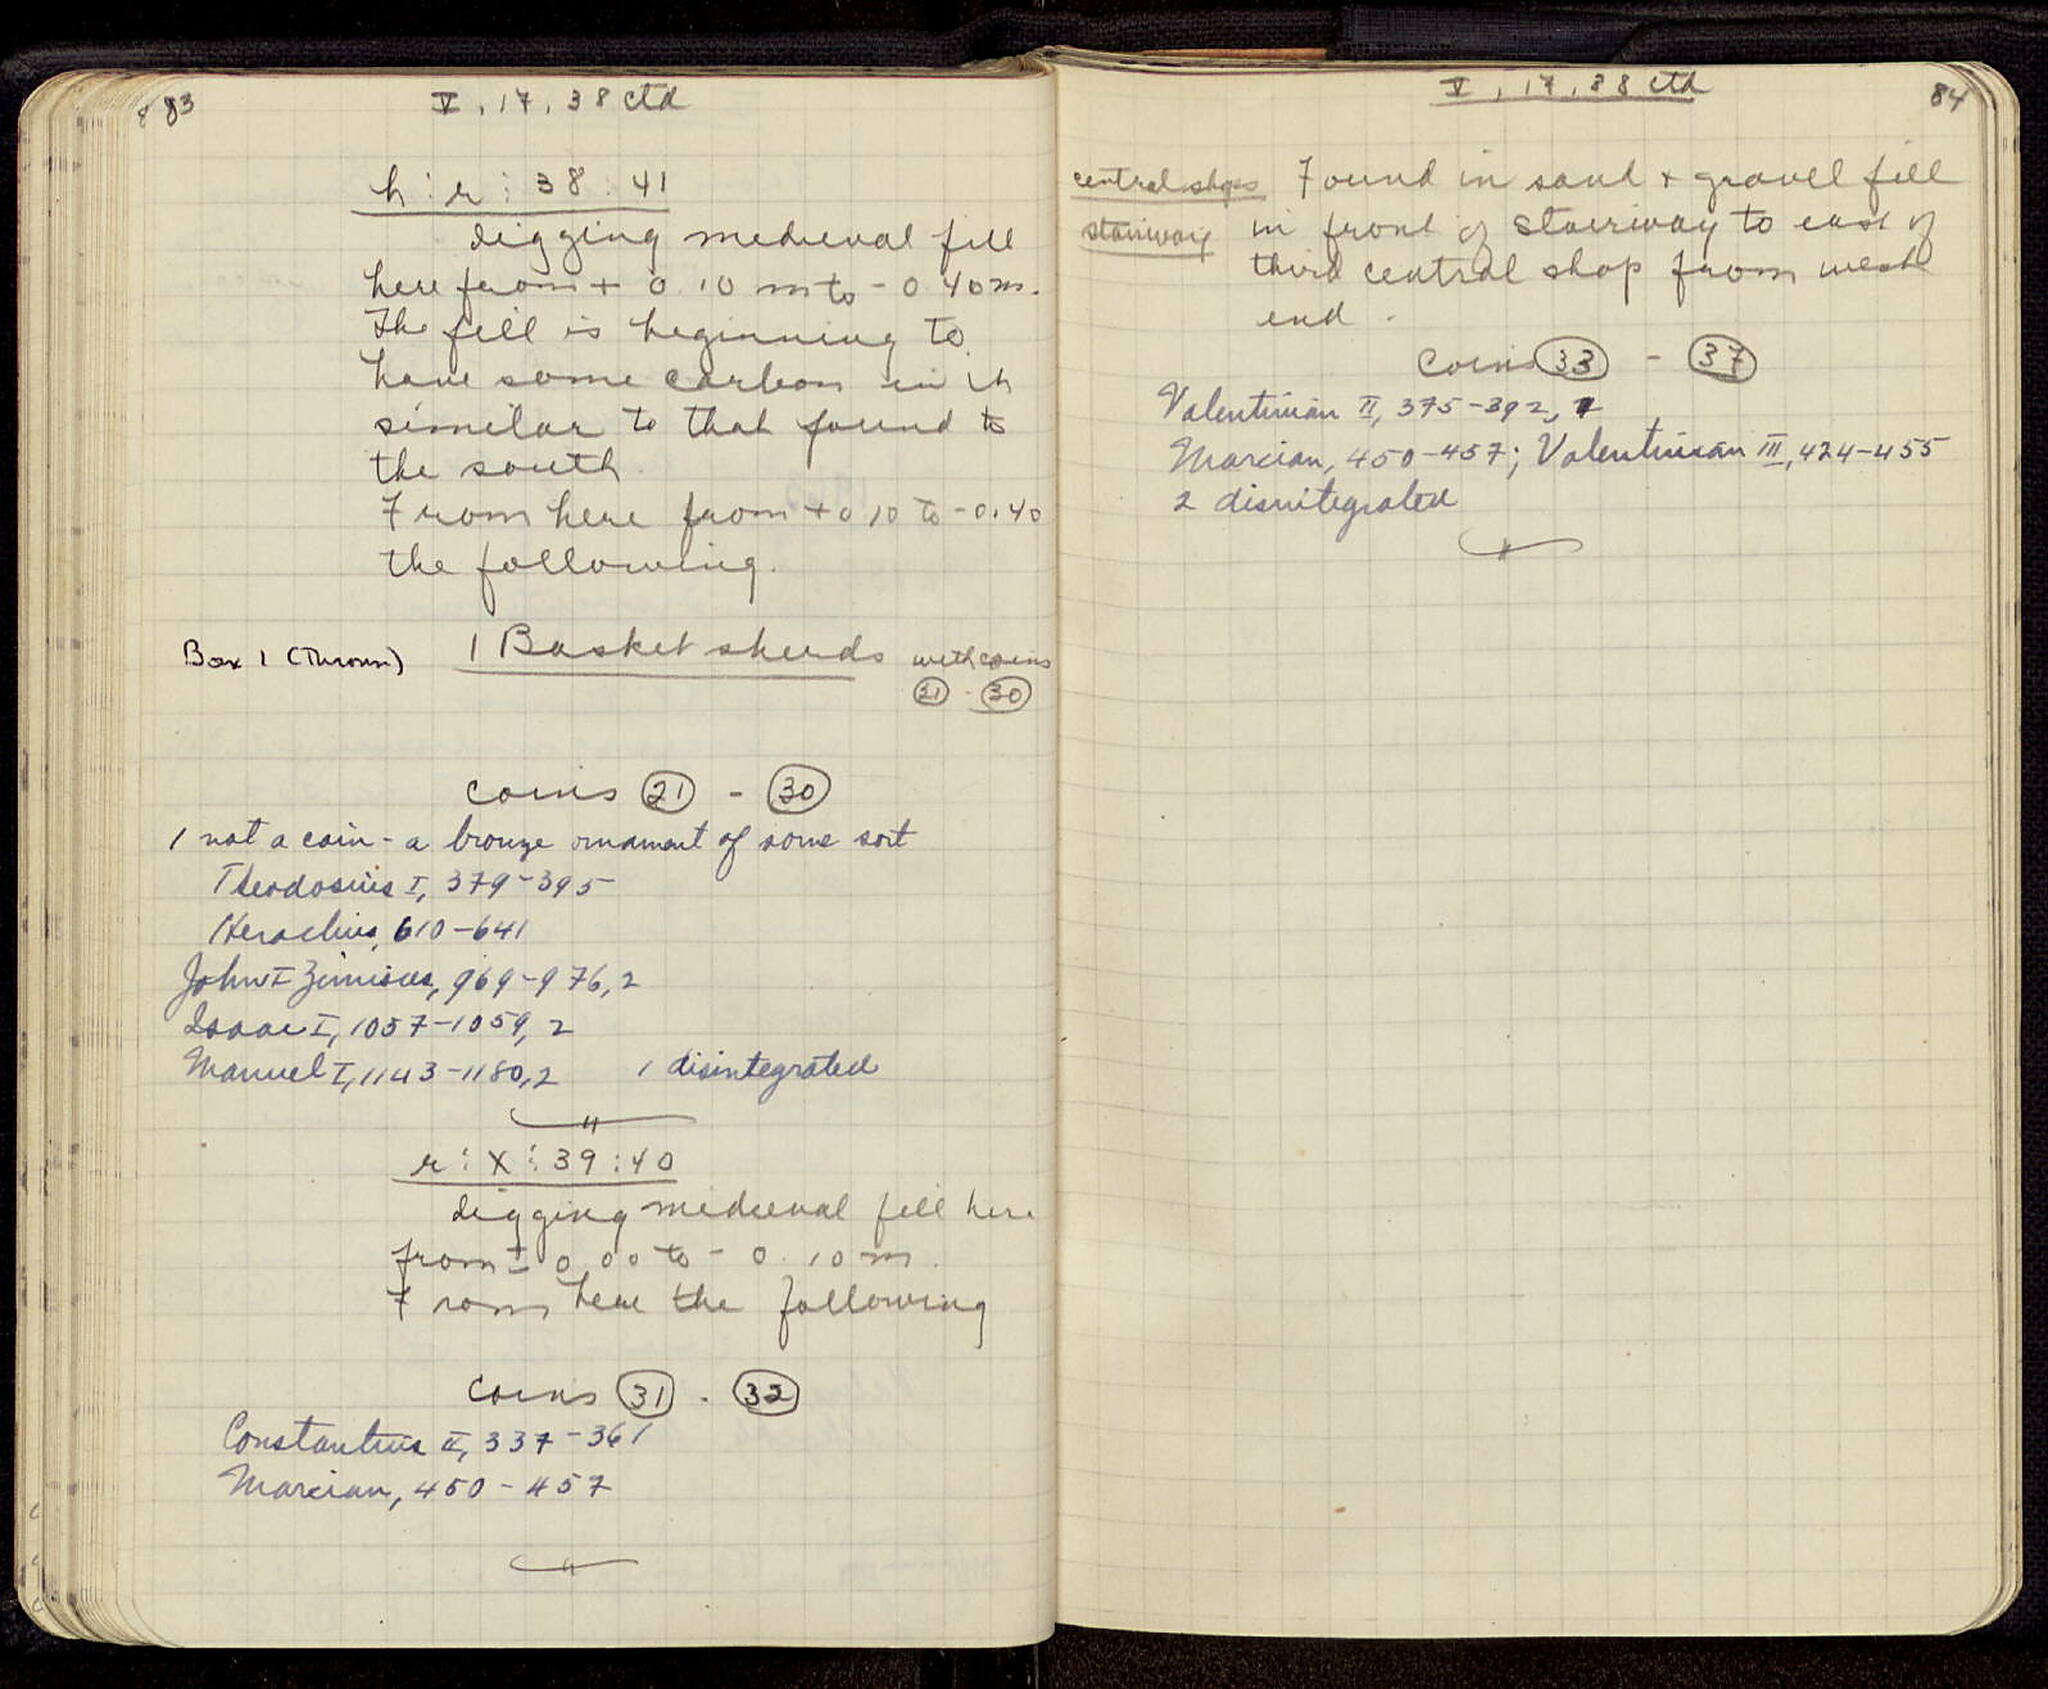 83
V, 17, 38 ctd
h : r : 38 : 41
digging medieval fill
here from + 0.10 m to - 0.40 m.
The fill is beginning to
have some carbon in it
similar to that found to
the south
From here from + 0 10 to - 0.40
the following.
Box 1 (Thrown)
1 Basket sherds with coins
21 - 30
coins 21 - 30
1 not a coin - a bronze ornament of some sort
Theodosius I, 379-395
Heraclius, 610-641
John I Zimisces, 969-976, 2
Isaac I, 1057-1059, 2
Manuel I, 1143-1180, 2 1 disintegrated
r : X : 39 : 40
digging medieval fill here
from ± 0.00 to - 0.10 m.
From here the following
coins 31 - 32
Constantius II, 337-361
Marcian, 450-457
V, 17, 38 ctd
84
central shops
stairway
Found in sand + gravel fill
in front of stairway to east of
third central shop from west
end.
coins 33 - 37
Valentinian II, 375-392,
Marcian, 450-457; Valentinian III, 424-455
2 disintegrated